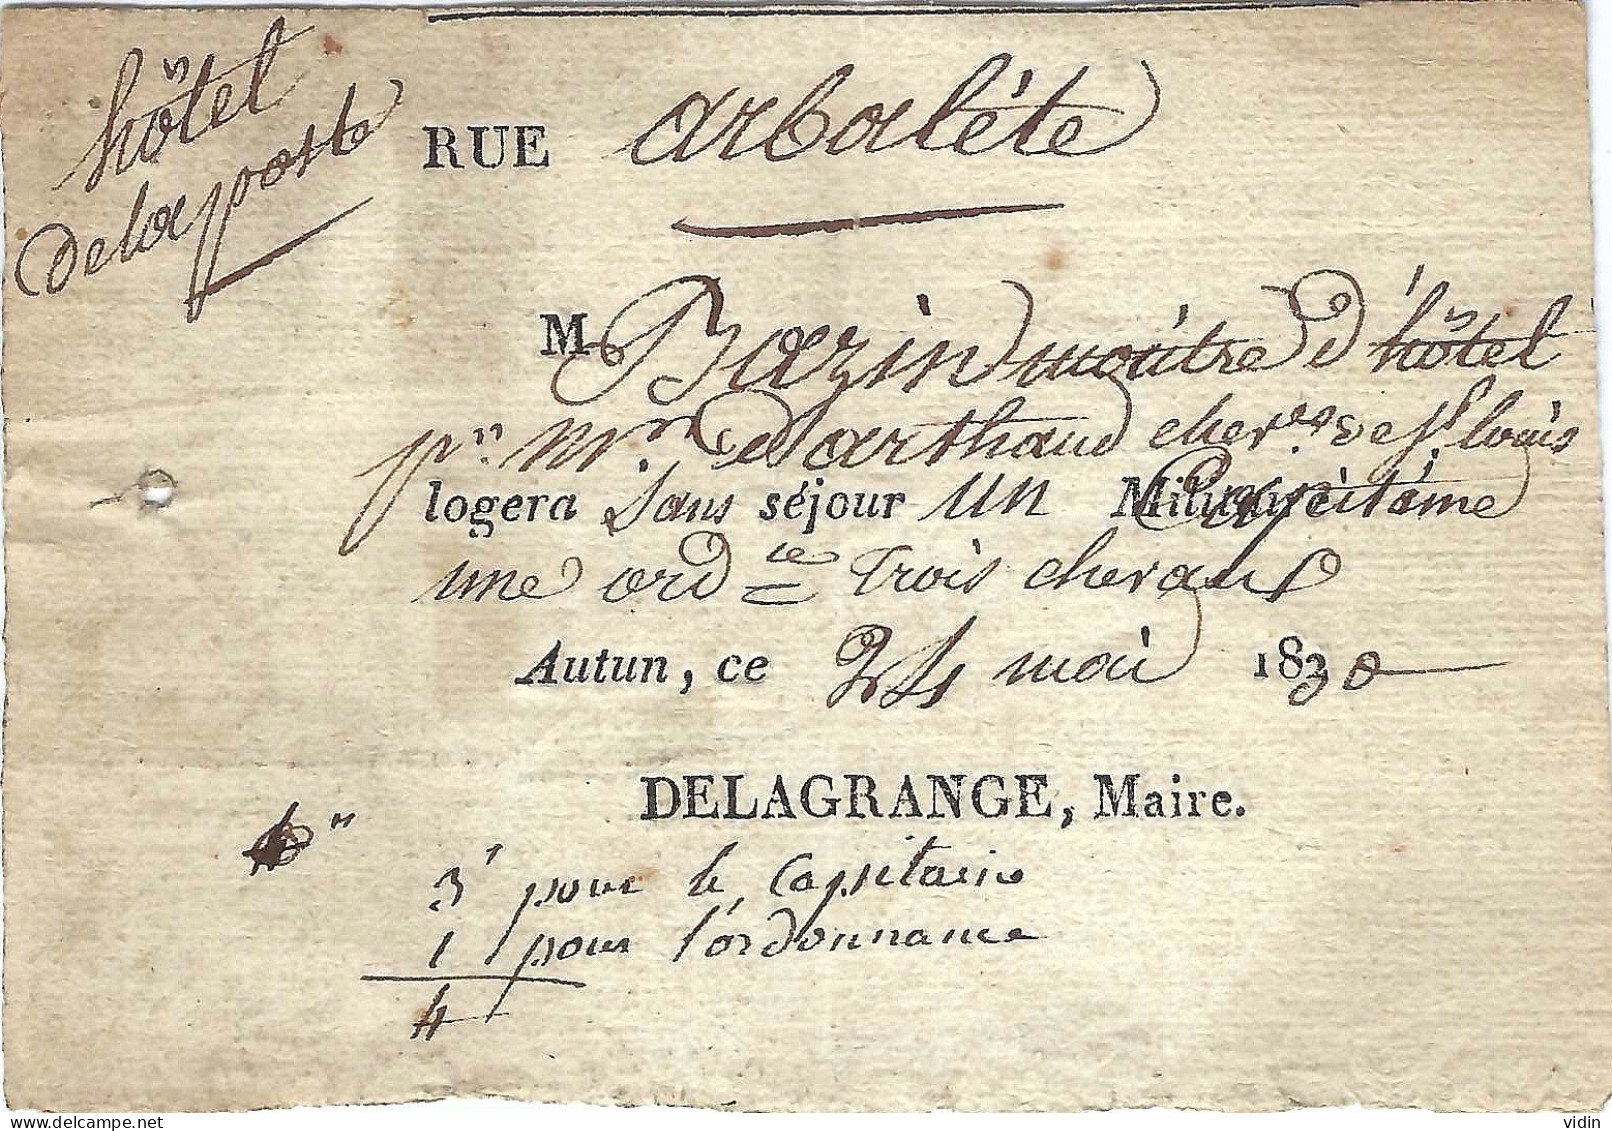 hôtel
de la poste
RUE arbalête
M Bazin maître d'hôtel
pr Mr Darthaud chever de St louis
logera sans séjour un Militaire Capitaine
une ordce trois chevaux
Autun, ce 24 mai 1830
DELAGRANGE, Maire.
3f pour le Capitaine
1 pour l'ordonnance
4
vidin